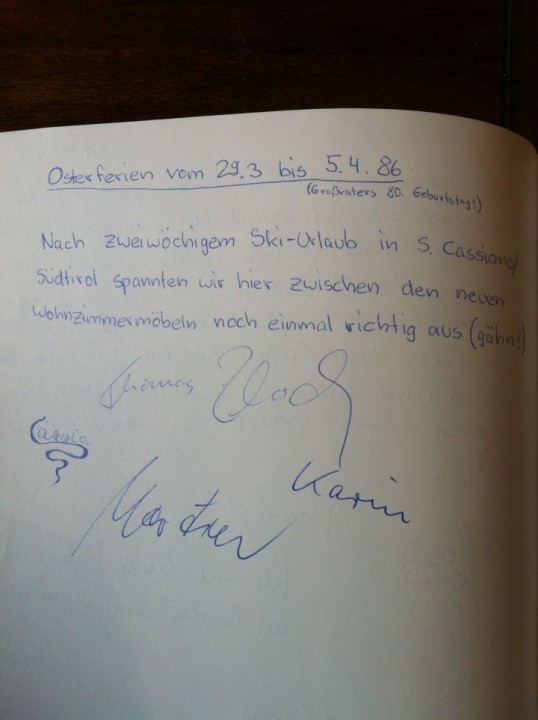 Osterferien vom 29.3 bis 5.4.86
(Großvaters 80. Geburtstag!)
Nach zweiwöchigem Ski-Urlaub in S. Cassiano/
Südtirol spannten wir hier zwischen den neuen
Wohnzimmermöbeln noch einmal richtig aus (gähn!)
Thomas
Carola
Karin